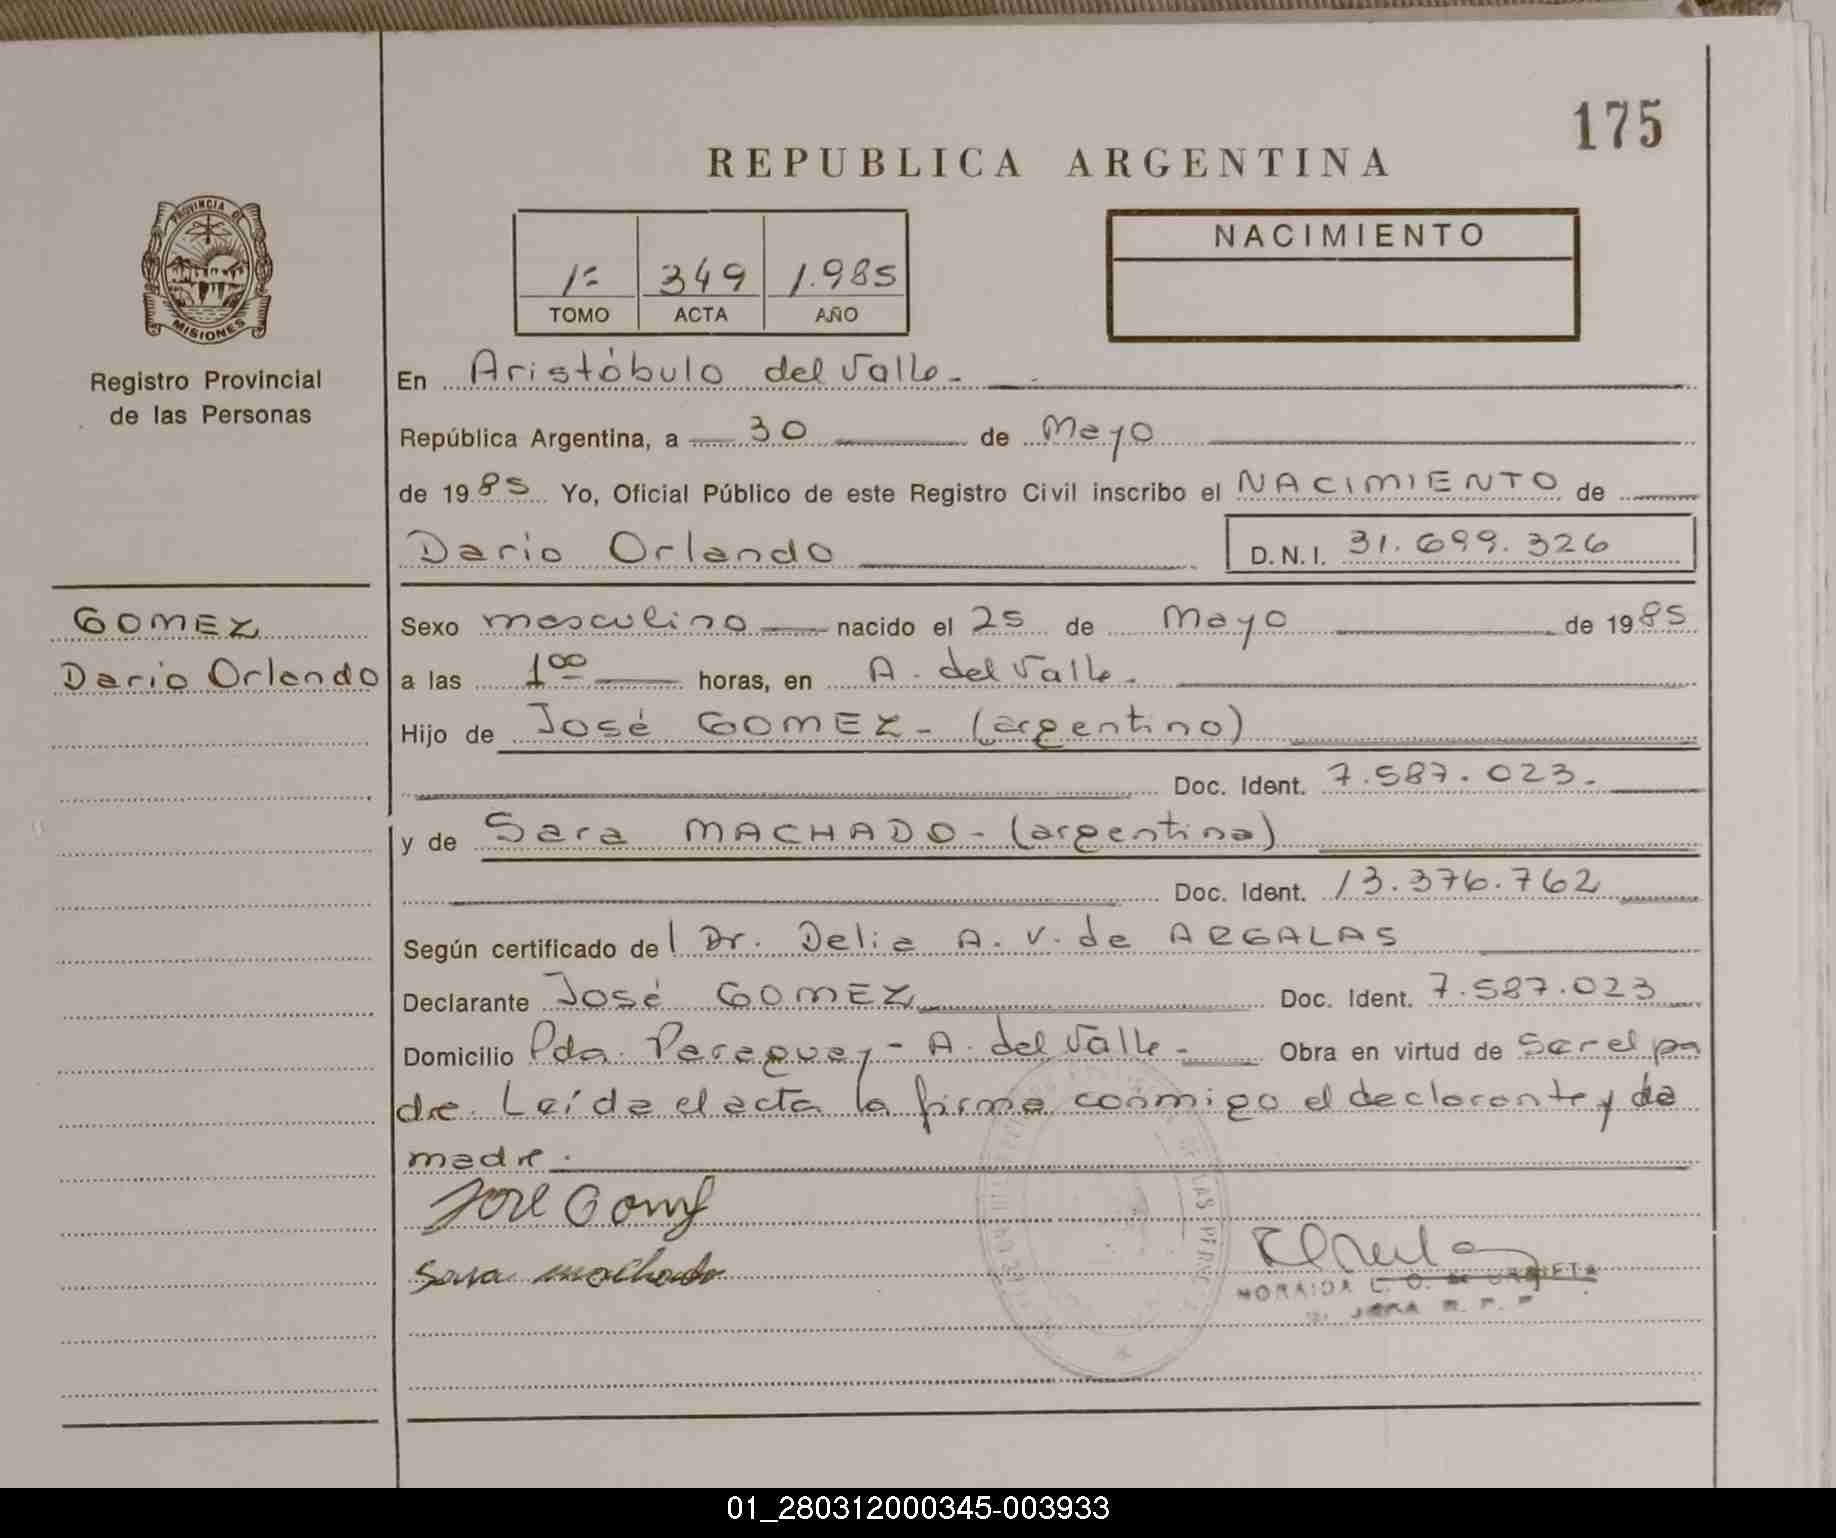 175
REPUBLICA ARGENTINA
PROVINCIA DE
MISIONES
Registro Provincial
de las Personas
1= 349 1.985
TOMO ACTA AÑO
NACIMIENTO
En Aristóbulo del Valle.
República Argentina, a 30 de Mayo
de 1985 Yo, Oficial Público de este Registro Civil inscribo el NACIMIENTO de
Dario Orlando D.N.I. 31.699.326
GOMEZ
Dario Orlando
Sexo masculino nacido el 25 de Mayo de 1985
a las 1 00 horas, en A. del Valle.
Hijo de José GOMEZ - (argentino)
Doc. Ident. 7.587.023.
y de Sara MACHADO - (argentina)
Doc. Ident. 13.376.762
Según certificado de Dr. Delia A. V. de ARGALAS
Declarante José GOMEZ Doc. Ident. 7.587.023
Domicilio Pda. Paraguay - A. del Valle - Obra en virtud de ser el pa
dre. Leída el acta la firma conmigo el declarante y la
madre.
José Gomez
Sara machado
01_280312000345-003933